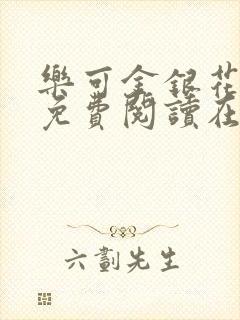 樂可金銀花
免費閱讀在
六劃先生